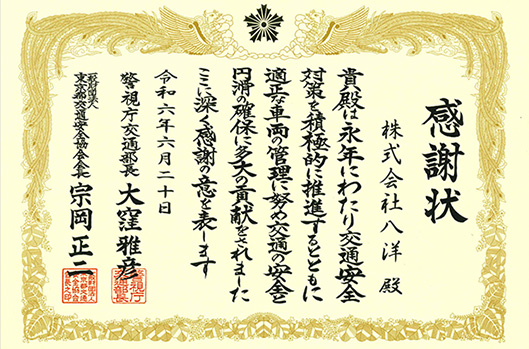 感謝状
株式会社八洋 殿
貴殿は永年にわたり交通安全
対策を積極的に推進するとともに
適正な車両の管理に努め交通の安全と
円滑の確保に多大の貢献をされました
ここに深く感謝の意を表します
令和六年六月二十日
警視庁交通部長 大窪雅彦
警視庁交通部長
財団法人
東京都交通安全協会会長 宗岡正二